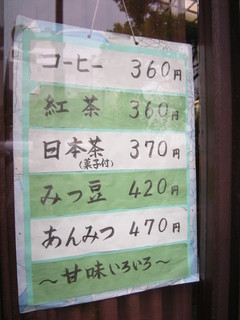 コーヒー 360円
紅茶 360円
日本茶 370円
(菓子付)
みつ豆 420円
あんみつ 470円
～甘味いろいろ～